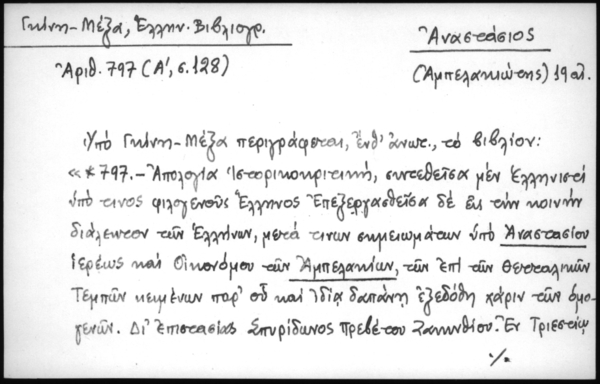 Γκίνη-Μέξα, Ἑλλην. Βιβλιογρ.
Ἀναστάσιος
Ἀριθ. 797 (Α', σ. 128)
(Ἀμπελακιώτης) 19 αἰ.
Ὑπό Γκίνη-Μέξα περιγράφεται, ἔνθ' ἀνωτ., τό βιβλίον:
«*797.- Ἀπολογία Ἱστορικοκριτική, συντεθεῖσα μέν Ἑλληνιστί
ὑπό τινος φιλογενοῦς Ἕλληνος Ἐπεξεργασθεῖσα δέ εἰς τήν κοινήν
διάλεκτον τῶν Ἑλλήνων, μετά τινων σημειωμάτων ὑπό Ἀναστασίου
Ἱερέως καί Οἰκονόμου τῶν Ἀμπελακίων, τῶν ἐπί τῶν Θετταλικῶν
Τεμπῶν κειμένων παρ' οὗ καί ἰδίᾳ δαπάνῃ ἐξεδόθη χάριν τῶν ὁμο-
γενῶν. Δι' ἐπιστασίας Σπυρίδωνος Πρεβέτου Ζακυνθίου. Ἐν Τριεστίῳ
./.